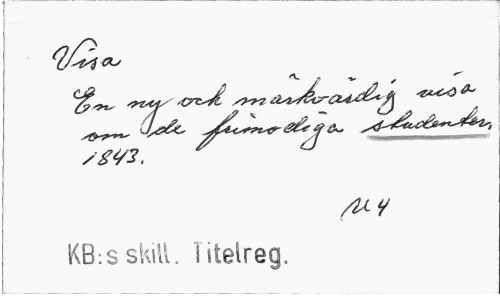 Visa
En ny och märkvärdig visa
om de frimodiga studenter.
1843.
N 4
KB:s skill. Titelreg.